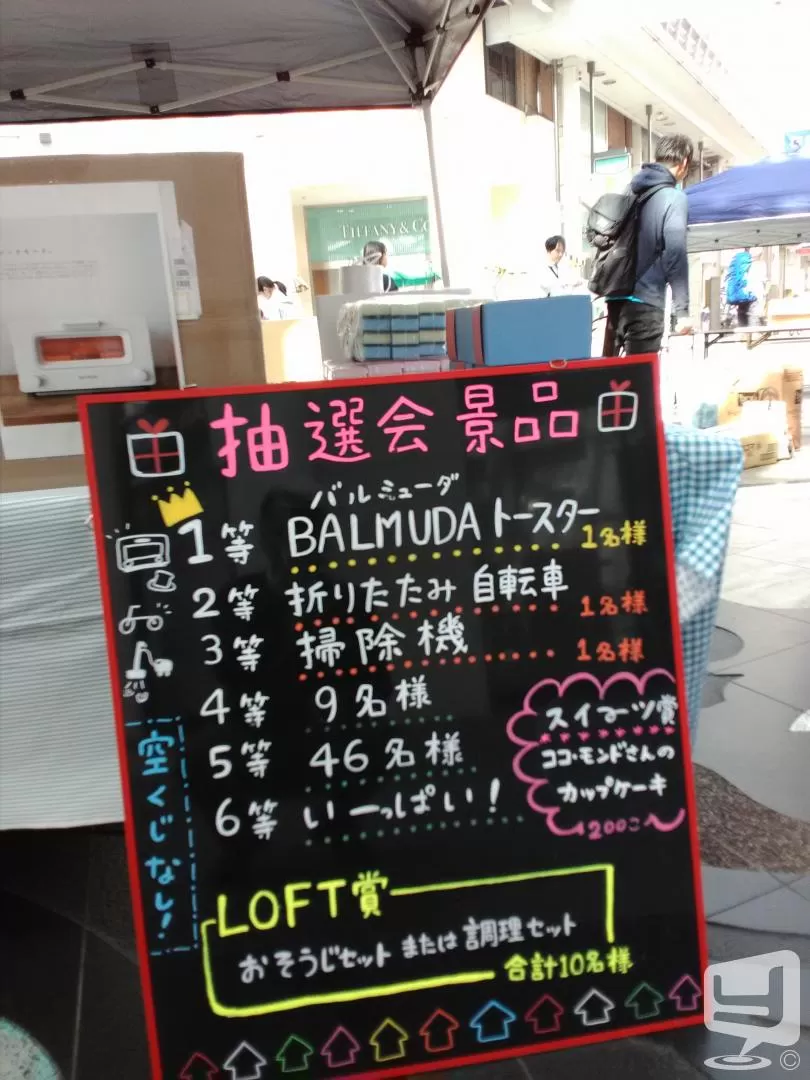 TIFFANY & CO.
抽選会景品
バルミューダ
1等 BALMUDAトースター 1名様
2等 折りたたみ自転車 1名様
3等 掃除機 1名様
4等 9名様
5等 46名様
6等 いーっぱい!
空くじなし!
スイーツ賞
ココ・モンドさんの
カップケーキ
200コ
LOFT賞
おそうじセット または 調理セット
合計10名様